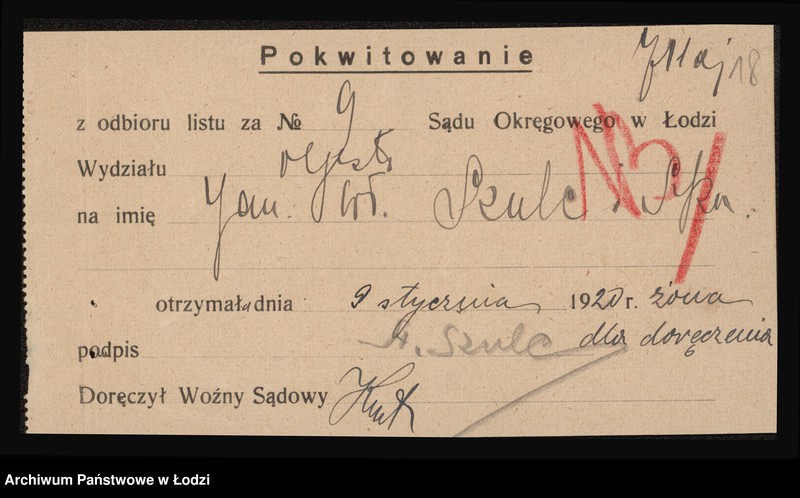 Pokwitowanie
18
z odbioru listu za № 9 Sądu Okręgowego w Łodzi
Wydziału rejestr
na imię Jan Wł. Szulc i S-ka.
otrzymała dnia 9 stycznia 1920 r. żona
podpis A. Szulc dla doręczenia
Doręczył Woźny Sądowy
Archiwum Państwowe w Łodzi